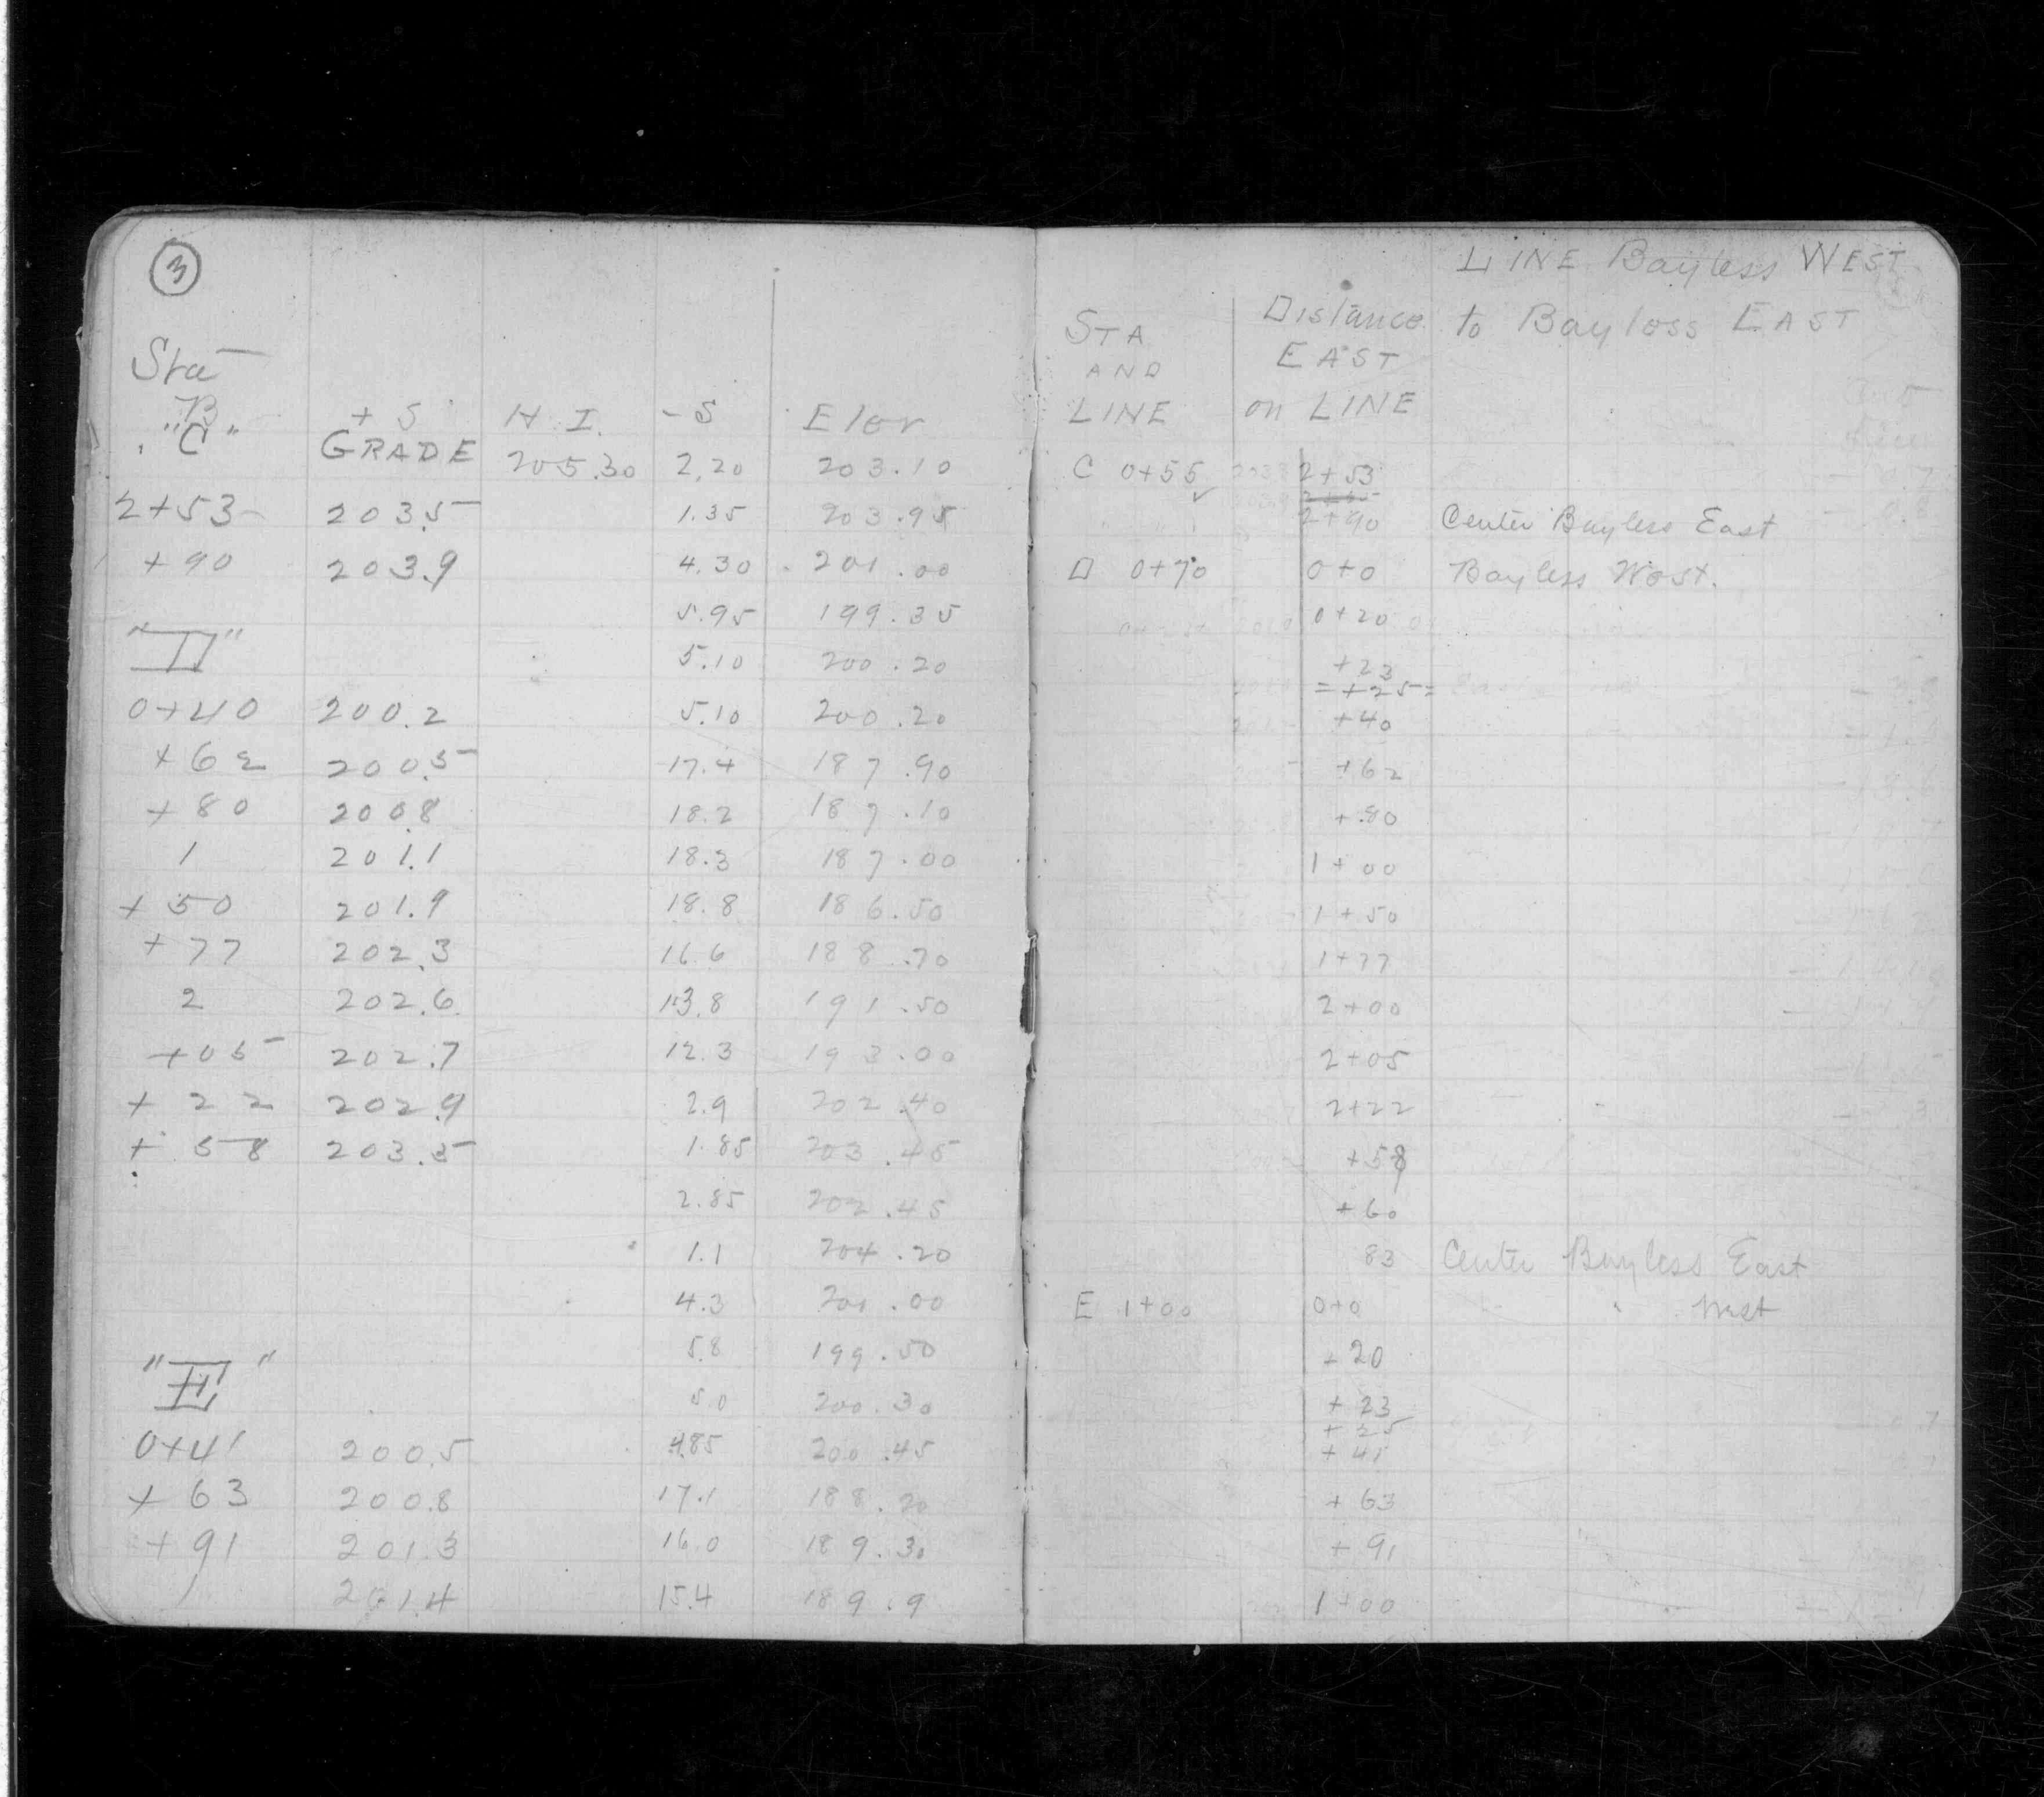 3
Sta
B
"C" + S GRADE H. I. - S Elev
205.30 2.20 203.10
2+53 203.5 1.35 203.95
+90 203.9 4.30 201.00
5.95 199.35
"D" 5.10 200.20
0+40 200.2 5.10 200.20
+62 200.5 17.4 187.90
+80 200.8 18.2 187.10
1 201.1 18.3 187.00
+50 201.9 18.8 186.50
+77 202.3 16.6 188.70
2 202.6 13.8 191.50
+05 202.7 12.3 193.00
+22 202.9 2.9 202.40
+58 203.5 1.85 203.45
2.85 202.45
1.1 204.20
4.3 201.00
5.8 199.50
"E" 5.0 200.30
0+41 200.5 4.85 200.45
+63 200.8 17.1 188.20
+91 201.3 16.0 189.30
1 201.4 15.4 189.9
LINE Bayless WEST
to Bayless EAST
STA AND LINE
Distance EAST on LINE
C 0+55 2+53
2+90 Center Bayless East
D 0+70 0+0 Bayless West.
0+20
+23
+25
+40
+62
+80
1+00
1+50
1+77
2+00
2+05
2+22
+58
+60
83 Center Bayless East
E 1+00 0+0 " West
+20
+23
+25
+41
+63
+91
1+00